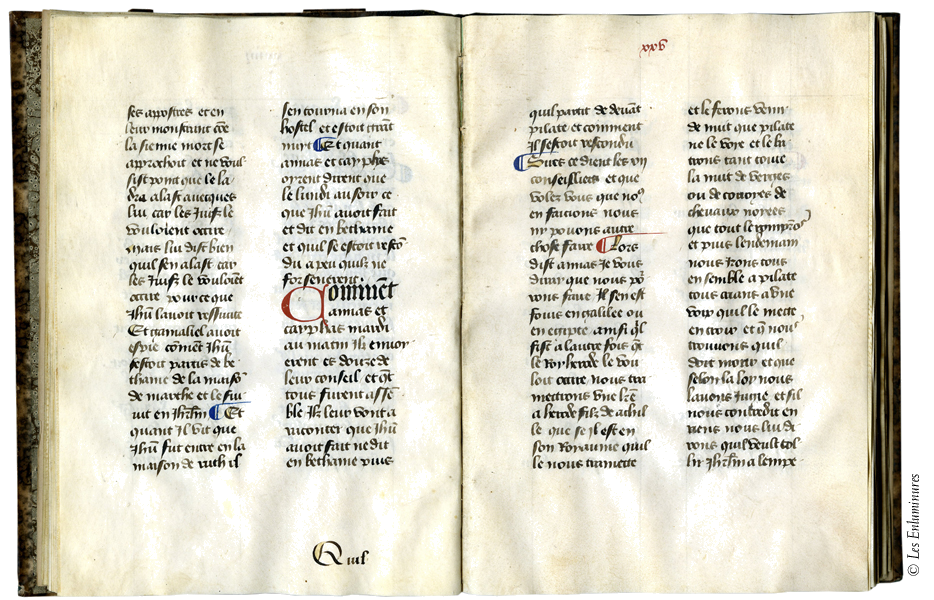 ses apostres et en
leur monstrant cõe
la sienne mort se
approchoit et ne voul
sist point que le la
dre alast avecques
lui car les Juifz le
vouloient occire
mais lui dist bien
quil sen alast car
les Juifz le vouloiẽt
occire pour ce que
Jhũ lavoit ressucite
Et gamaliel avoit
espie cõmẽt Jhũ
sestoit partis de be
thanie de la maisõ
de marthe et le sui
vit en Jhrlm Et
quant Il vit que
Jhũ fut entre en la
maison de ruth il
sen tourna en son
hostel et estoit tart
nuyt Et quant
annas et cayphas
oyrent dire que
le lundi au soir ce
que Jhũ avoit fait
et dit en bethanie
et quil se estoit
du a peu quilz ne
forsenerent
Commẽt
annas et
cayphas mardi
au matin Ilz envoy
erent es douze de
leur conseil et q̃t
tous furent assẽ
ble Ilz leur vont a
raconter que Jhũ
avoit fait ne dit
en bethanie puis
Quil
xxv
quil partit de devãt
pilate et comment
Il sestoit rescondu
Sures ce dient les vii
conseilliers et que
volez vous que noꝰ
en facions nous
ny povons autre
chose faire Lors
dist annas Je vous
diray que nous põ
rons faire Il sen est
fouis en galilee ou
en egipte ainsi q̃l
fist a lautre fois q̃
le Roy herode le vou
loit occire nous tra
mectrons une lr̃e
a herode filz de archil
le que se il est en
son Royaume quil
le nous tramecte
et le ferons venir
de nuit que pilate
ne le voye et le ba
trons tant toute
la nuit de verges
ou de coroyes de
chevaux noyees
que tout le romprõs
et puis lendemain
nous Irons tous
ensemble a pilate
tous avans a lui
voir quil le mecte
en croix et q̃ nous
trouvons quil
doit morir et que
selon la loy nous
lavons Jugie et sil
nous contredit en
riens nous lui di
rons quil veult tol
lir Jhrlm a lempe
© Les Enluminures